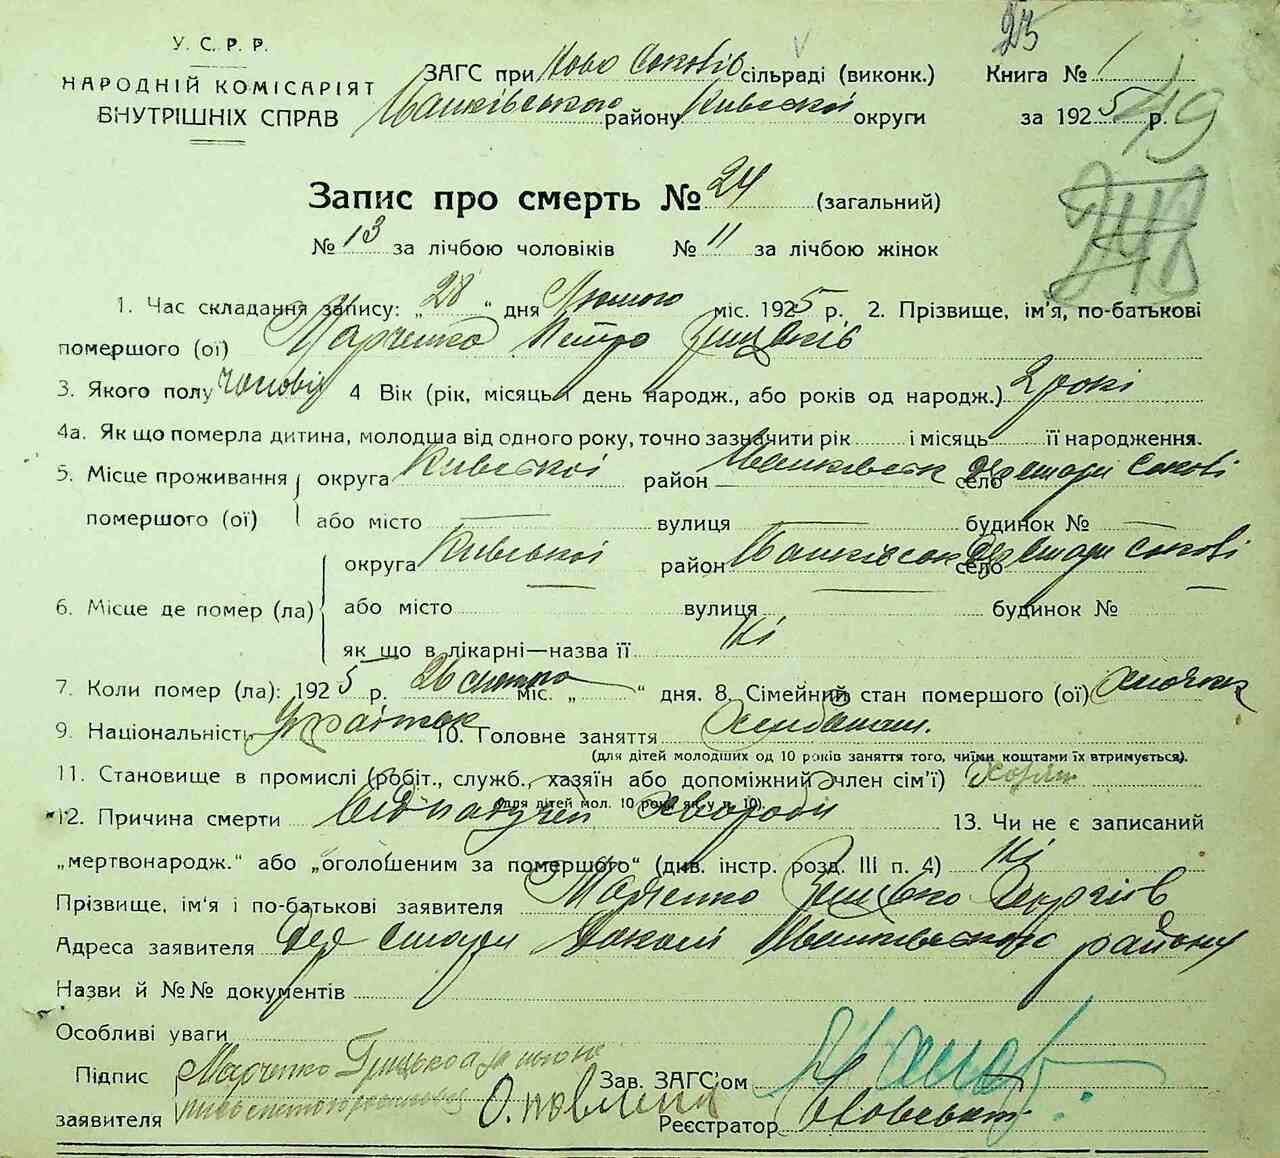 23
У. С. Р. Р.
НАРОДНІЙ КОМІСАРІЯТ
ВНУТРІШНІХ СПРАВ
ЗАГС при Ново Соковів сільраді (виконк.)
Іванківського району Київської округи
Книга № 1
за 1925 р.
49
248
Запис про смерть № 24 (загальний)
№ 13 за лічбою чоловіків № 11 за лічбою жінок
1. Час складання запису: „28" дня Лютого міс. 1925 р. 2. Прізвище, ім'я, по-батькові
помершого (ої) Марченко Петро Грицьків
3. Якого полу чоловіч 4 Вік (рік, місяць і день народж., або років од народж.) 2 роки
4а. Як що померла дитина, молодша від одного року, точно зазначити рік і місяць її народження.
5. Місце проживання округа Київської район Іванківськ село дер Стари Сокові
помершого (ої) або місто — вулиця — будинок № —
округа Київської район Іванківськ село дер Стари Сокові
6. Місце де помер (ла) або місто — вулиця — будинок № —
як що в лікарні—назва її Ні
7. Коли помер (ла): 1925 р. 26 лютого міс. „ " дня. 8. Сімейний стан помершого (ої)
9. Національність Українец 10. Головне заняття Хлібопаш.
(для дітей молодших од 10 років заняття того, чиїми коштами їх втримується).
11. Становище в промислі (робіт., служб., хазяїн або допоміжний член сім'ї)
(для дітей мол. 10 років як у п. 10).
12. Причина смерти Від падучей хвороби 13. Чи не є записаний
„мертвонародж." або „оголошеним за помершого" (див. інстр. розд. III п. 4) Ні
Прізвище, ім'я і по-батькові заявителя Марченко Грицько
Адреса заявителя Дер Стари Соколі Іванківського району
Назви й №№ документів
Особливі уваги
Підпис Марченко Грицько а за нього
заявителя
Зав. ЗАГС'ом
Реєстратор